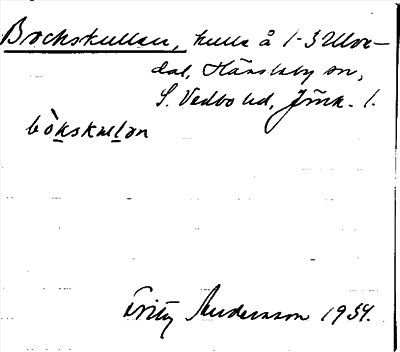 Bockskullen, kulle å 1-3 Ulve-
dal, Hässleby sn,
S. Vedbo hd, Jönk. l.
bòkskullən
Fritz Andersson 1954.